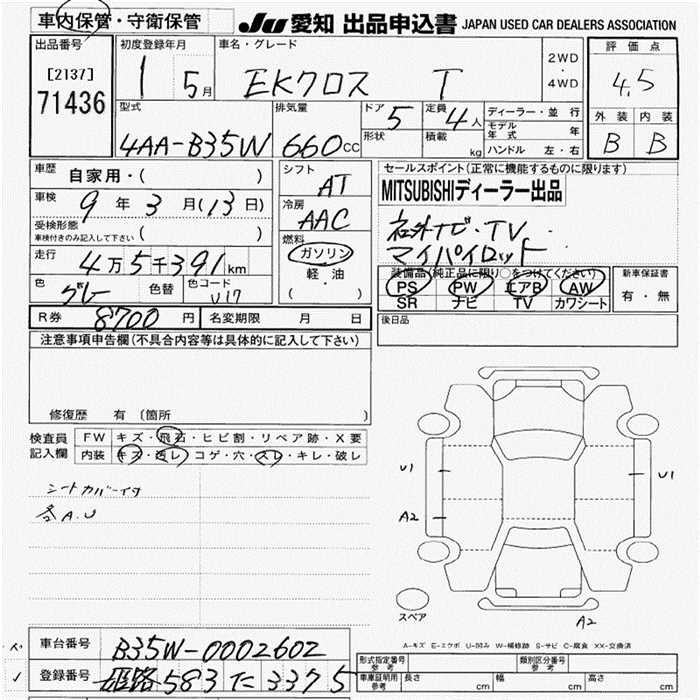 車内保管・守衛保管
JU 愛知 出品申込書 JAPAN USED CAR DEALERS ASSOCIATION
出品番号
[2137]
71436
初度登録年月
1 5月
車名・グレード
EKクロス T
2WD
・
4WD
評価点
4.5
外装 内装
B B
型式
4AA-B35W
排気量
660cc
ドア 5
形状
定員 4人
積載 kg
ディーラー・並行
モデル年式 年
ハンドル 左・右
車歴
自家用・( )
車検
9年3月(13日)
受検形態
車検付きのみ記入して下さい ( )
走行
4万5千391km
色
グレー
色替
色コード
U17
シフト
AT
冷房
AAC
燃料
ガソリン
・
軽油
( ・ )
セールスポイント(正常に機能するものに限ります)
MITSUBISHIディーラー出品
社外ナビ・TV
マイパイロット
装備品(純正品に限り○をつけてください)
PS PW エアB AW
SR ナビ TV カワシート
新車保証書
有・無
R券 8700円
名変期限 月 日
後日品
注意事項申告欄(不具合内容等は具体的に記入して下さい)
修復歴 有 (箇所 )
検査員
記入欄
FW キズ・飛石・ヒビ割・リペア跡・X要
内装 キズ・汚レ・コゲ・穴・スレ・キレ・破レ
シートカバー付
各A.U
U1
U1
A2
スペア
A2
A-キズ E-エクボ U-凹み W-補修跡 S-サビ C-腐食 XX-交換済
車台番号
B35W-0002602
登録番号
姫路583た3375
形式指定番号
参考
類別区分番号
参考
車庫証明用
参考
長さ cm
幅 cm
高さ cm